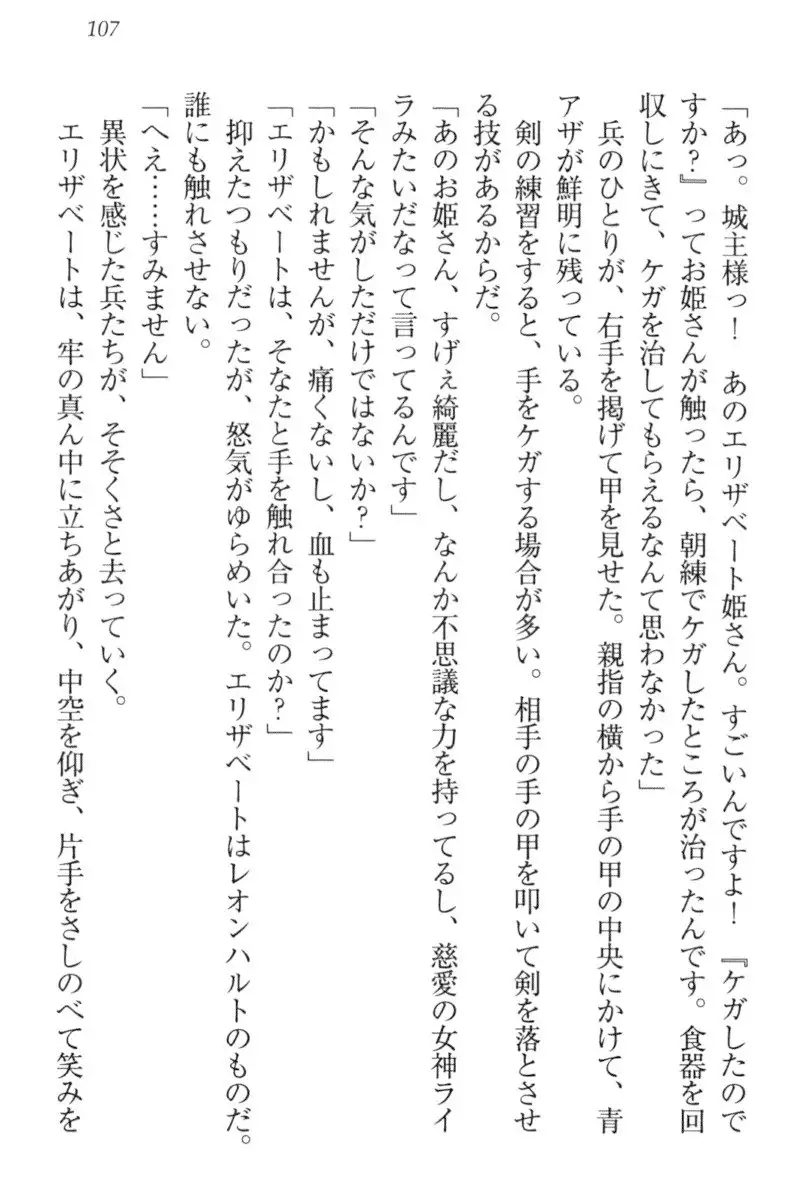 107
「あっ。城主様っ！　あのエリザベート姫さん。すごいんですよ！　『ケガしたので
すか？』ってお姫さんが触ったら、朝練でケガしたところが治ったんです。食器を回
収しにきて、ケガを治してもらえるなんて思わなかった」
　兵のひとりが、右手を掲げて甲を見せた。親指の横から手の甲の中央にかけて、青
アザが鮮明に残っている。
　剣の練習をすると、手をケガする場合が多い。相手の手の甲を叩いて剣を落とさせ
る技があるからだ。
「あのお姫さん、すげぇ綺麗だし、なんか不思議な力を持ってるし、慈愛の女神ライ
ラみたいだなって言ってるんです」
「そんな気がしただけではないか？」
「かもしれませんが、痛くないし、血も止まってます」
「エリザベートは、そなたと手を触れ合ったのか？」
　抑えたつもりだったが、怒気がゆらめいた。エリザベートはレオンハルトのものだ。
誰にも触れさせない。
「へえ……すみません」
　異状を感じた兵たちが、そそくさと去っていく。
　エリザベートは、牢の真ん中に立ちあがり、中空を仰ぎ、片手をさしのべて笑みを